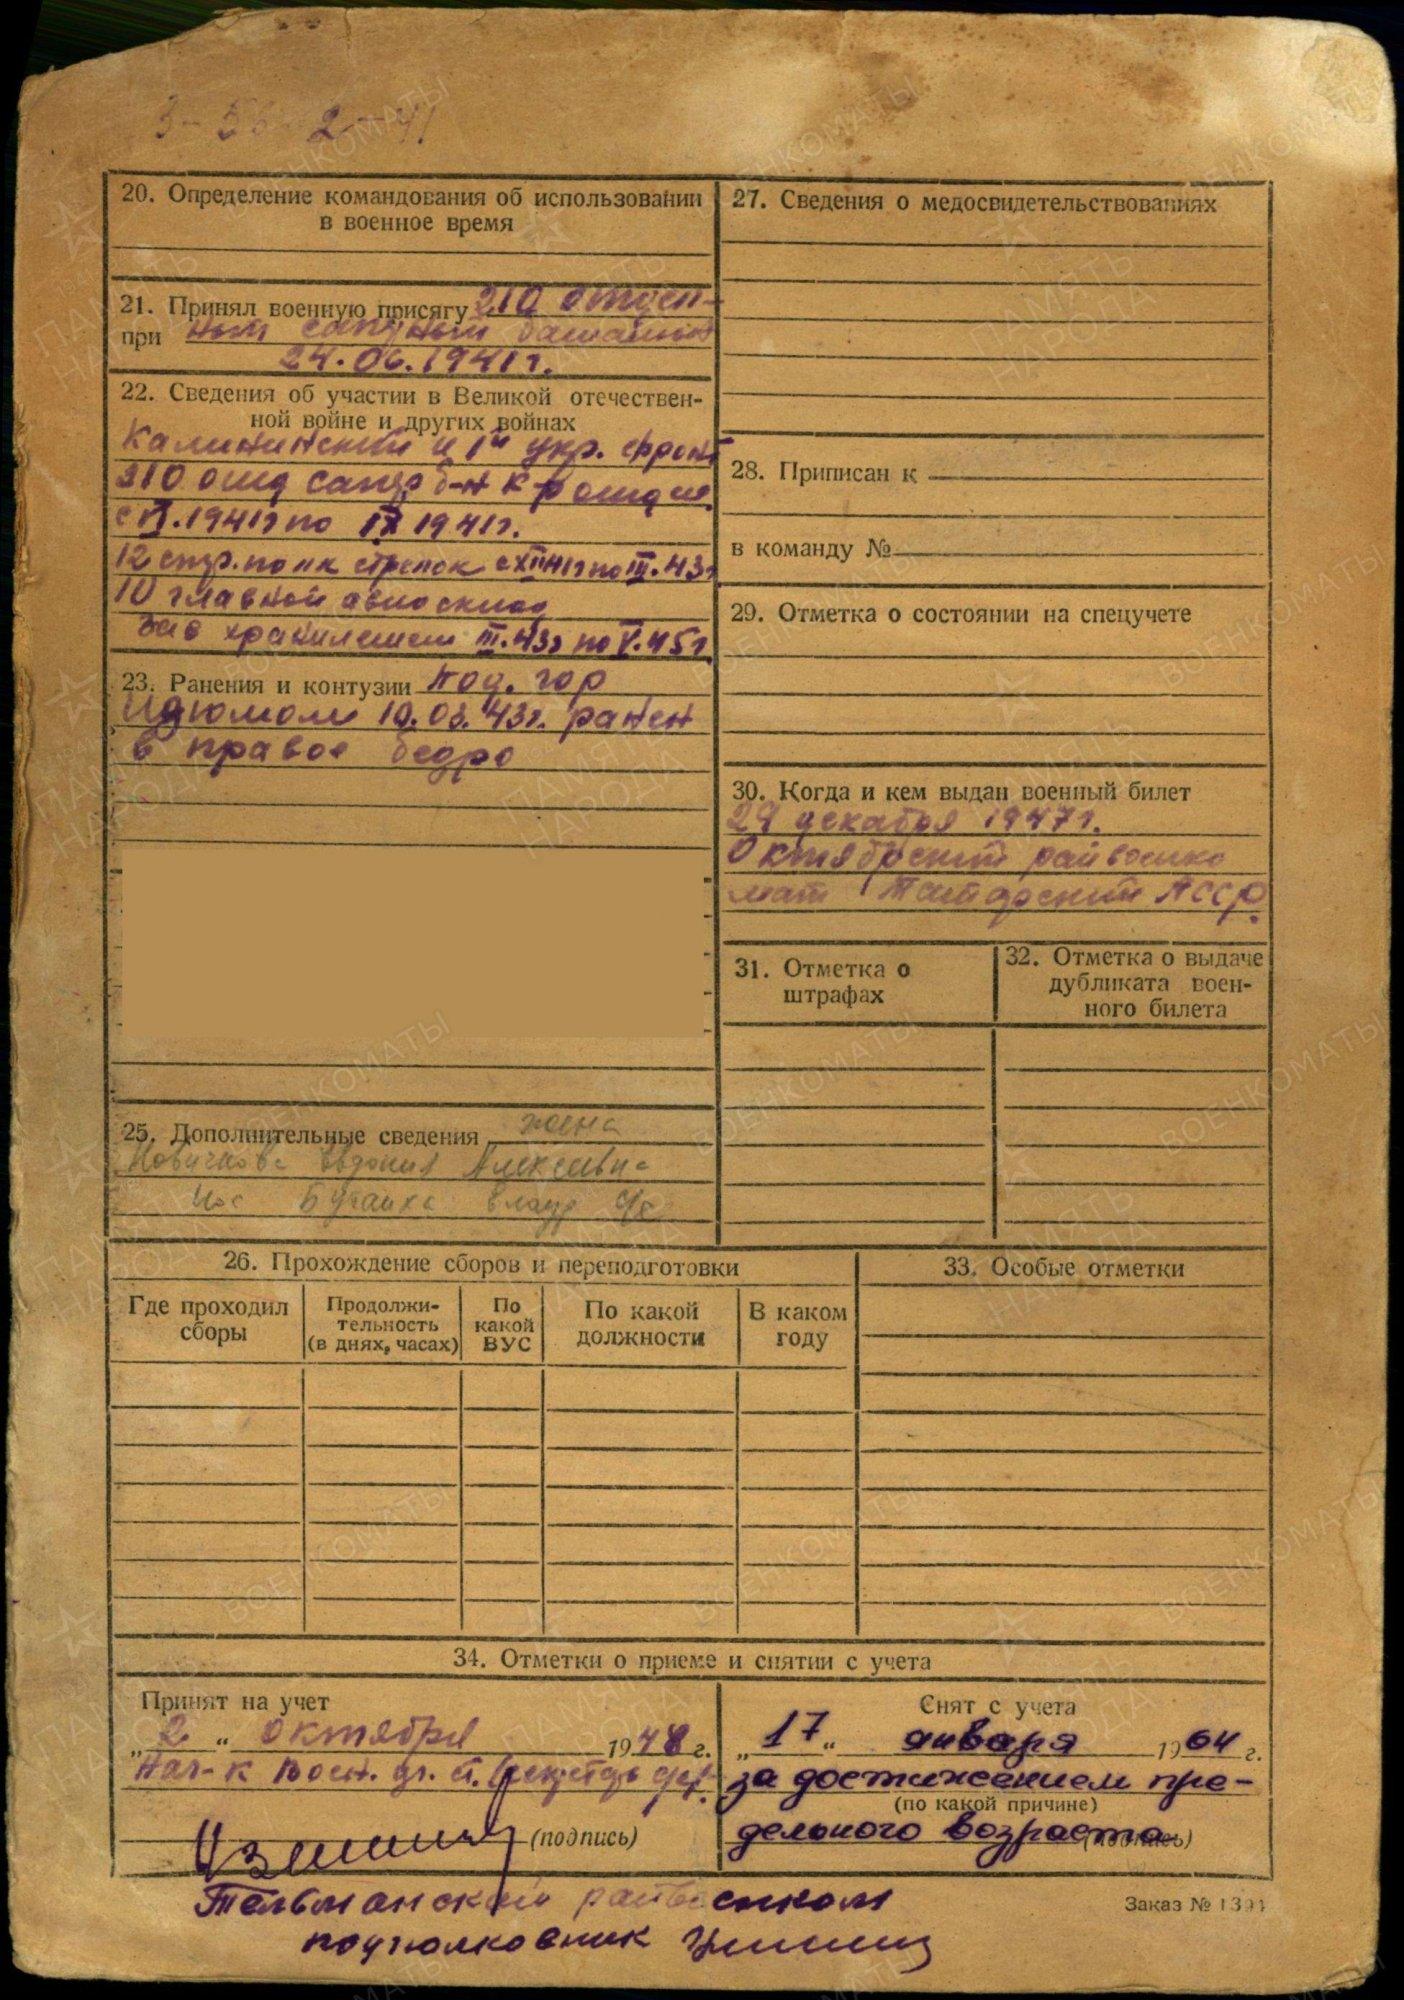 20. Определение командования об использовании
в военное время
21. Принял военную присягу 210 отдел-
при ном сапрном баталионе
24.06.1941г.
22. Сведения об участии в Великой отечествен-
ной войне и других войнах
Калининский и 1й укр. фронт
210 отд сапр б-н к-р отд
с VI.1941г по IX 1941г.
12 стр. полк стрелок с XII 41г по III.43г
10 главной авиосклад
Зав хранилищем III.43г по V.45г.
23. Ранения и контузии под. гор
Идюмом 10.03.43г. ранен
в правое бедро
25. Дополнительные сведения жена
Новичкова Евдокия Алексеевна
пос
26. Прохождение сборов и переподготовки
Где проходил сборы
Продолжи-
тельность
(в днях, часах)
По
какой
ВУС
По какой
должности
В каком
году
27. Сведения о медосвидетельствованиях
28. Приписан к
в команду №
29. Отметка о состоянии на спецучете
30. Когда и кем выдан военный билет
29 декабря 1947г.
Октябрский райвоенко
мат Татарский АССР.
31. Отметка о
штрафах
32. Отметка о выдаче
дубликата воен-
ного билета
33. Особые отметки
34. Отметки о приеме и снятии с учета
Принят на учет
„2“ октября 1948 г.
Нач-к Воен. уч. ст.
(подпись)
Снят с учета
„17“ января 1964 г.
за достижением пре-
(по какой причине)
дельного возраста
(подпись)
Тельманский райвоенком
подполковник
Заказ № 1391
ПАМЯТЬ НАРОДА
ВОЕНКОМАТЫ